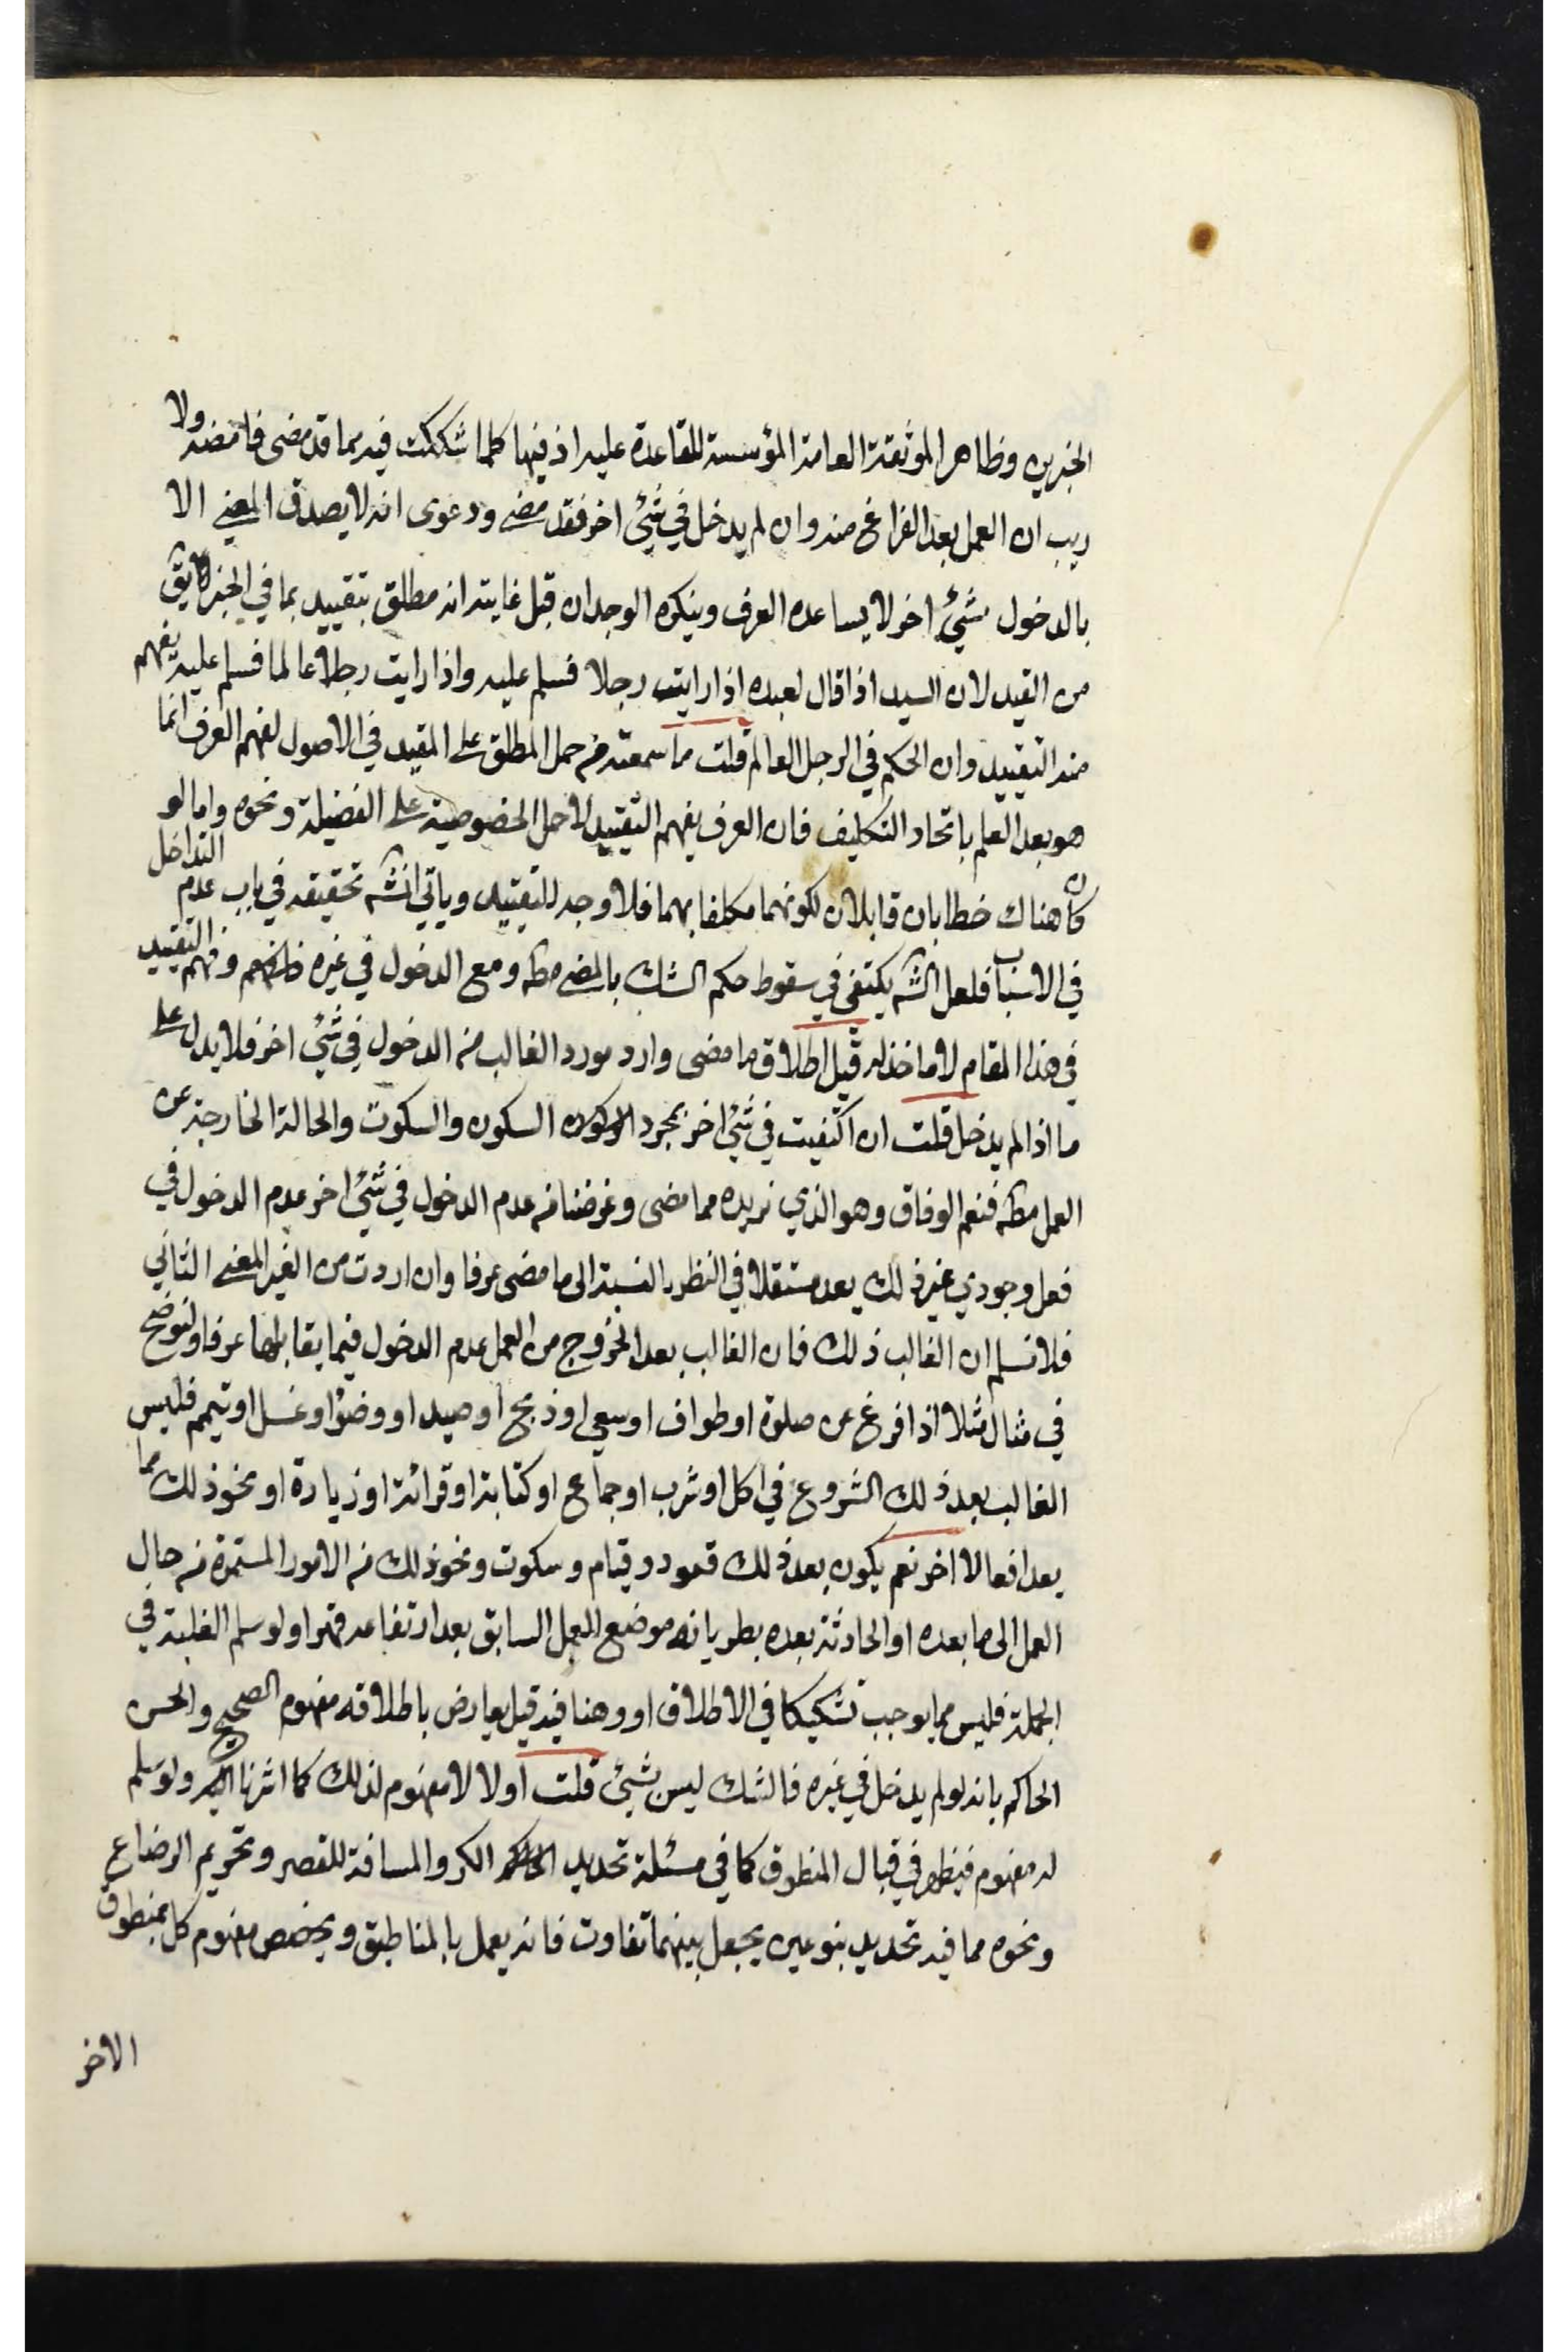 الخبرين وظاهر الموثقة العامة المؤسسة للقاعدة عليه اذ فيها كلما شككت فيه مما قد مضى فامضه ولا
ريب ان العمل بعد الفراغ منه وان لم يدخل في شيئ اخر فقد مضى ودعوى انه لا يصدق المضي الا
بالدخول شيئ اخر لا يساعده العرف وينكره الوجدان قيل غايته انه مطلق بتقييد بما في الخبر السابق
من القيد لان السيد اذا قال لعبده اذا رايت رجلا فسلم عليه واذا رايت رجلا عالما فسلم عليه يفهم
منه التقييد وان الحكم في الرجل العالم قلت ما سمعته من حمل المطلق على المقيد في الاصول لفهم العرف انما
هو بعد العلم باتحاد التكليف فان العرف يفهم التقييد لا حمل الخصوصية على الفضيلة ونحوه واما لو
كان هناك خطابان قابلان لكونهما مكلفا بهما فلا وجه للتقييد وياتي انشه تحقيقه في باب عدم التداخل
في الاسباب فلعل الشه يكتفي في سقوط حكم الشك بالمضي مطه ومع الدخول في غيره وفهم التقييد
في هذا المقام لا ماخذ له قيل اطلاق ما مضى وارد مورد الغالب من الدخول في شيئ اخر فلا يدل على
ما اذا لم يدخل قلت ان اكتفيت في شيئ اخر بمجرد السكون والسكوت والحالة الخارجة عن
العمل مطه فنعم الوفاق وهو الذي نريده مما مضى وغرضنا من عدم الدخول في شيئ اخر عدم الدخول في
فعل وجودي غير ذلك يعد مستقلا في النظر بالنسبة الى ما مضى عرفا وان اردت من الغير المعنى الثاني
فلا نسلم ان الغالب ذلك فان الغالب بعد الخروج من العمل عدم الدخول فيما يقابلها عرفا ولنوضح
في مثال مثلا اذا فرغ عن صلوة او طواف او سعي او ذبح او صيد او وضوء او غسل او تيمم فليس
الغالب بعد ذلك الشروع في اكل او شرب او جماع او كتابة او قرائة او زيارة او نحو ذلك مما
يعد افعالا اخر نعم يكون بعد ذلك قعود وقيام وسكوت ونحو ذلك من الامور المستمرة من حال
العمل الى ما بعده او الحادثة بعده بطريانه موضع العمل السابق بعد ارتفاعه قهرا ولو سلم الغلبة في
الجملة فليس مما يوجب تشكيكا في الاطلاق او وهنا فيه قيل يعارض باطلاقه مفهوم الصحيح والحسن
الحاكم بانه لو لم يدخل في غيره فالشك ليس بشيئ قلت اولا لا مفهوم لذلك كما اشرنا اليه ولو سلم
له مفهوم فيظهر في قبال المنطوق كما في مسئلة تحديد الكر والمسافة للقصر وتحريم الرضاع
ونحوه مما فيه تحديد بنوعين يجعل بينهما تفاوت فانه يعمل بالمناطيق ويخصص مفهوم كل بمنطوق
الاخر